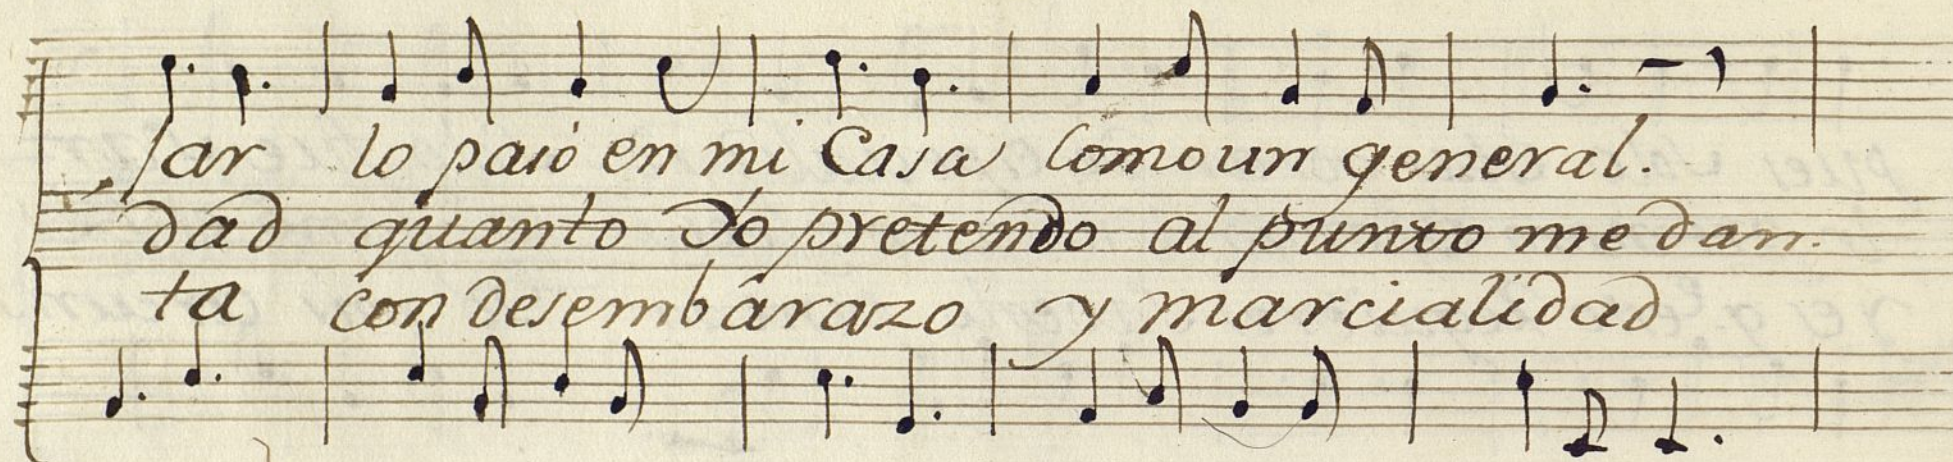 sar lo pasó en mi Casa Como un general.
dad quanto Yo pretendo al punto me dan.
ta con desembarazo y marcialidad